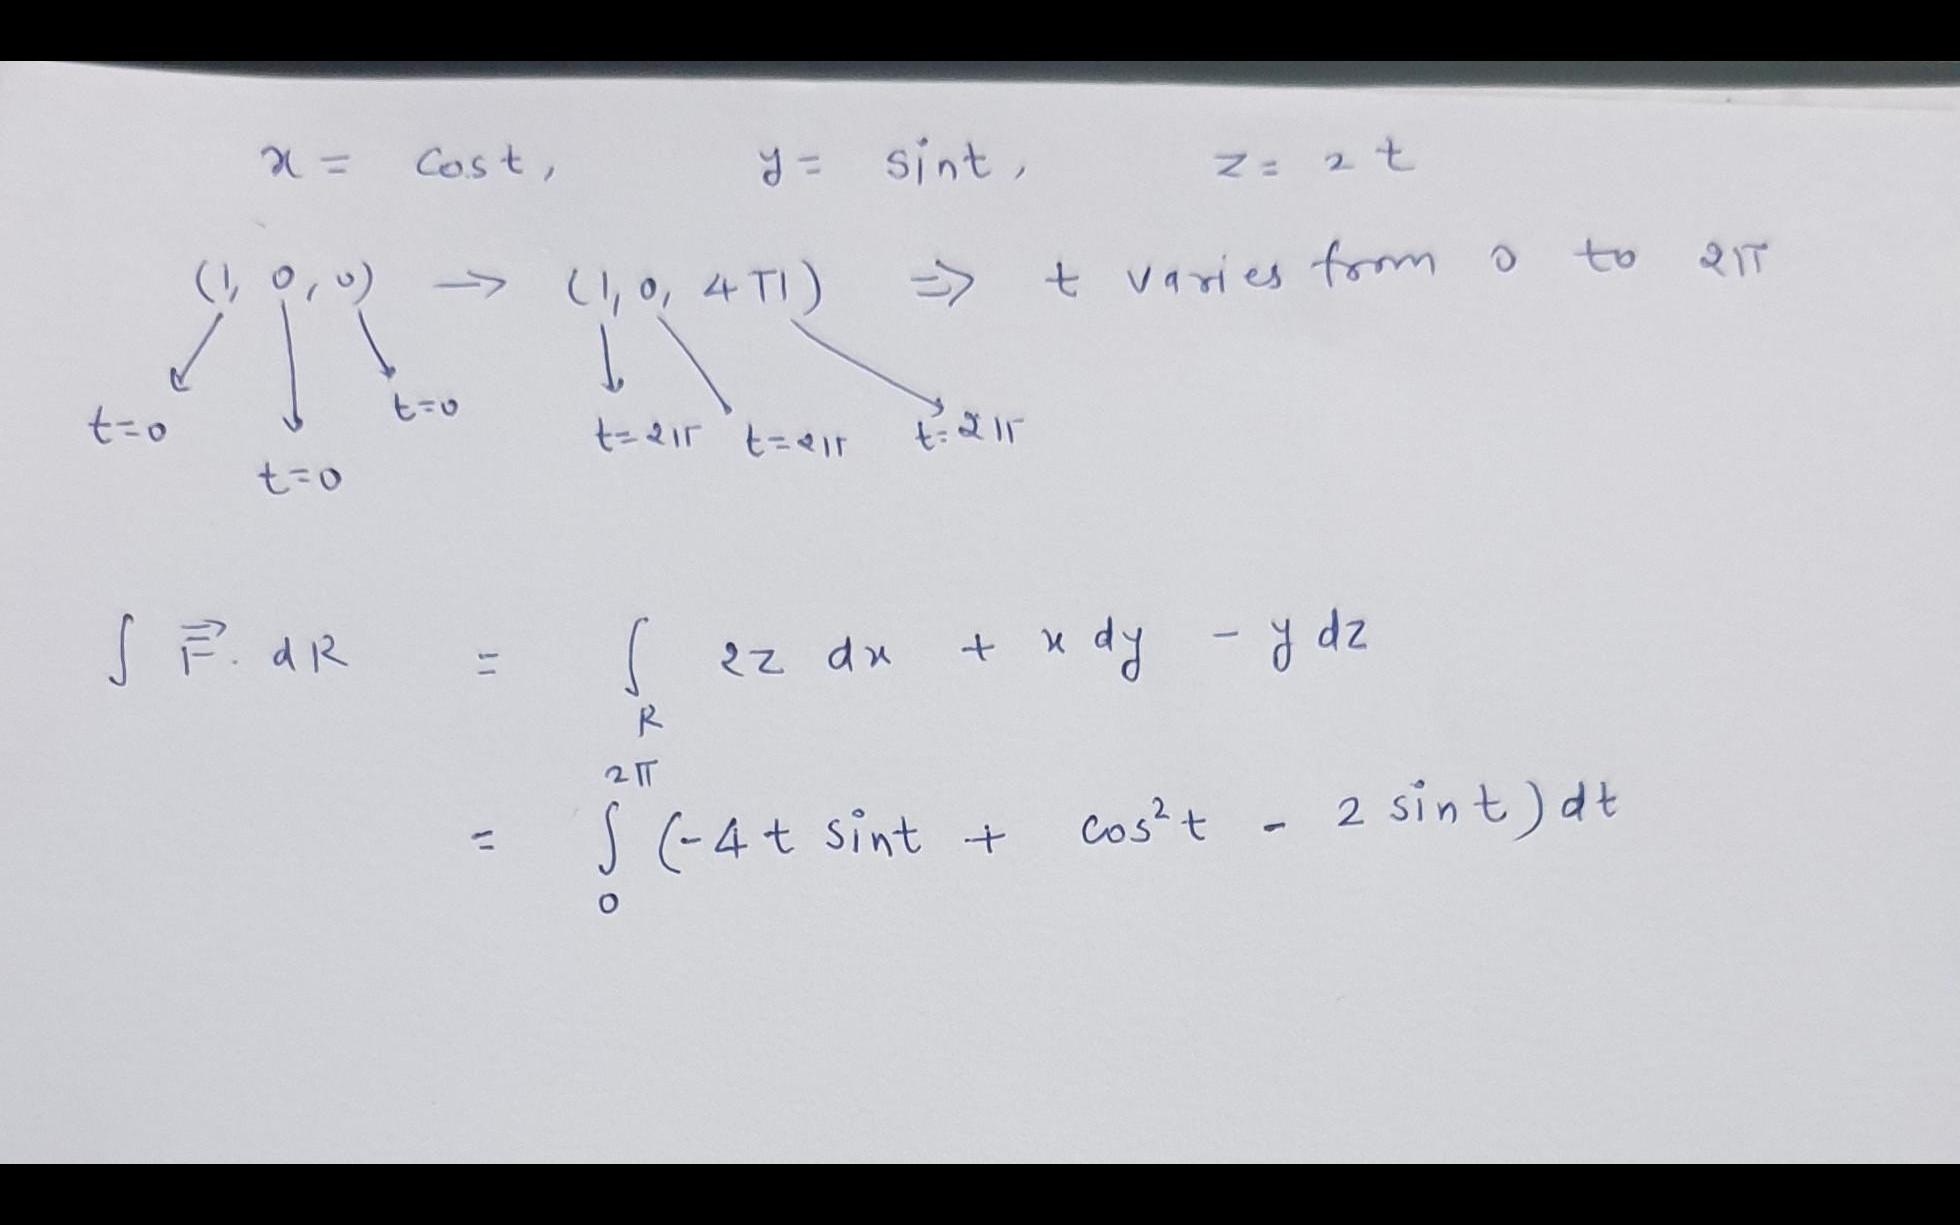 x = cost, y = sint, z = 2t
(1, 0, 0) → (1, 0, 4π) ⇒ t varies from 0 to 2π
t=0 t=0 t=0 t=2π t=2π t=2π
∫ F⃗. dR = ∫_R 2z dx + x dy - y dz
= ∫_0^{2π} (-4t sint + cos²t - 2 sint) dt